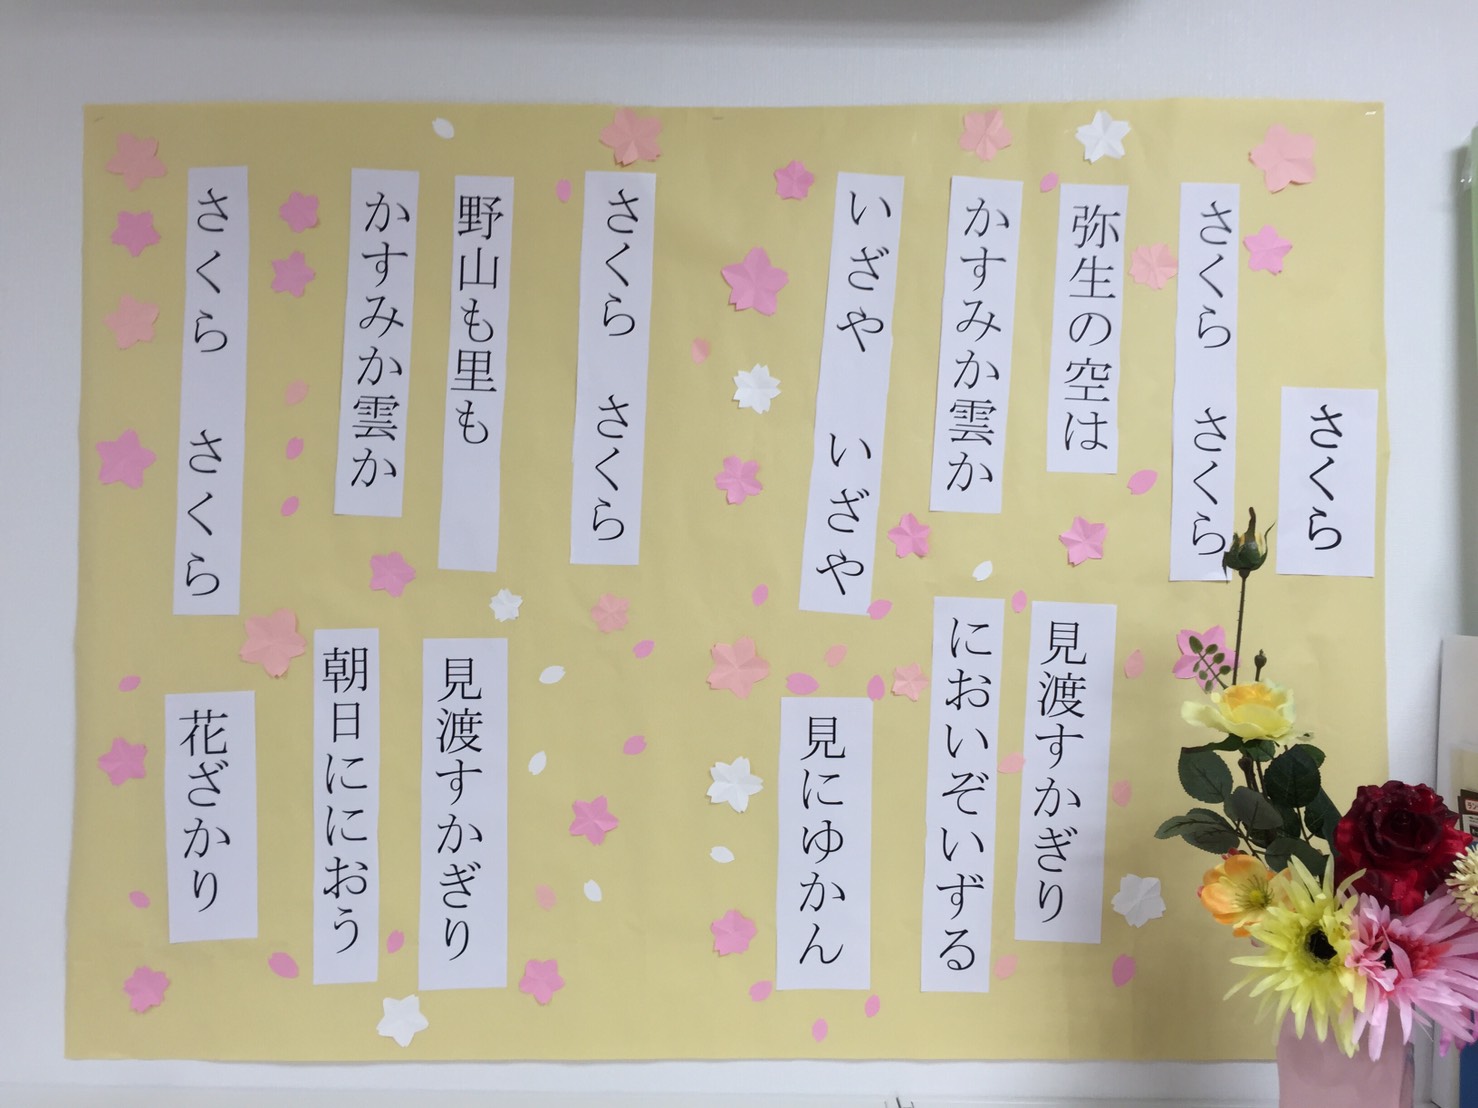 さくら
さくら　さくら
弥生の空は
見渡すかぎり
かすみか雲か
においぞいずる
いざや　いざや
見にゆかん
さくら　さくら
野山も里も
見渡すかぎり
かすみか雲か
朝日ににおう
さくら　さくら
花ざかり